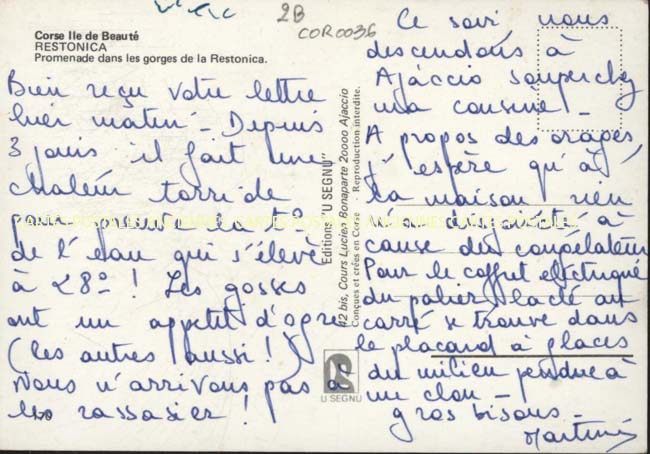 2B
COR0036
Corse Ile de Beauté
RESTONICA
Promenade dans les gorges de la Restonica.
Bien reçu votre lettre
hier matin - Depuis
3 jours il fait une
chaleur torride
pour la t°
de l'eau qui s'élève
à 28° ! Les gosses
ont un appetit d'ogre
(les autres aussi !)
Nous n'arrivons pas à
les rassasier !
170
Editions "U SEGNU"
42 bis, Cours Lucien Bonaparte 20000 Ajaccio
Conçues et crées en Corse - Reproduction interdite.
U SEGNU
Ce soir nous
descendons à
Ajaccio souper chez
ma cousine -
A propos des orages,
j'espère qu'à
la maison rien
n'a disjoncté à
cause du congelateur
Pour le coffret electrique
du palier la clé au
carré se trouve dans
le placard à glaces
du milieu pendue à
un clou -
gros bisous -
Martine